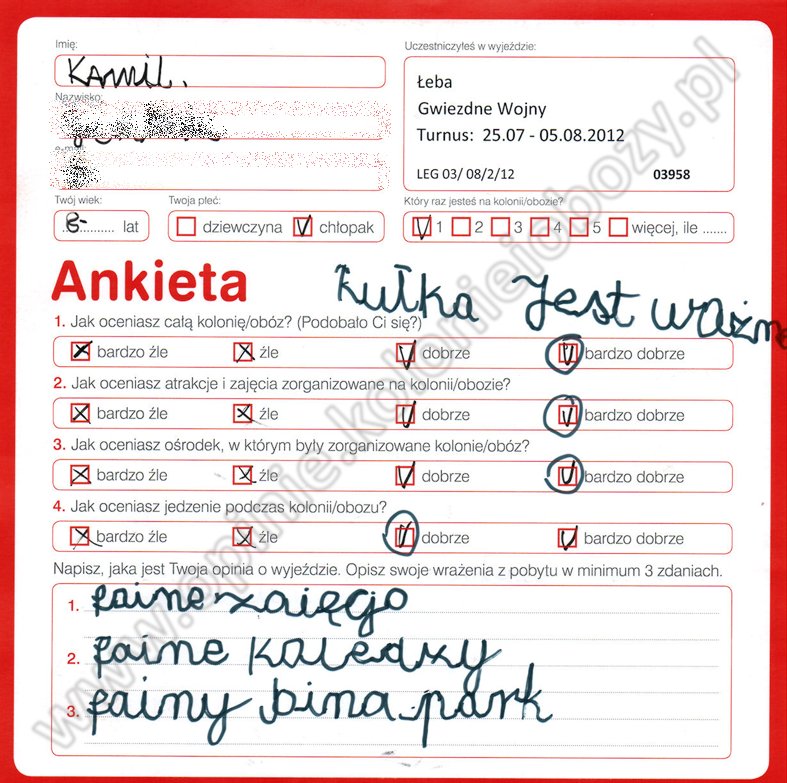 Imię:
Uczestniczyłeś w wyjeździe:
KAmil.
Nazwisko:
Łeba
Gwiezdne Wojny
Turnus: 25.07 - 05.08.2012
LEG 03/ 08/2/12 03958
Twój wiek:
Twoja płeć:
Który raz jesteś na kolonii/obozie?
8- lat
dziewczyna V chłopak
V 1 2 3 4 5 więcej, ile .......
Ankieta
kułka jest ważne
1. Jak oceniasz całą kolonię/obóz? (Podobało Ci się?)
X bardzo źle X źle V dobrze V bardzo dobrze
2. Jak oceniasz atrakcje i zajęcia zorganizowane na kolonii/obozie?
X bardzo źle X źle V dobrze V bardzo dobrze
3. Jak oceniasz ośrodek, w którym były zorganizowane kolonie/obóz?
X bardzo źle X źle V dobrze V bardzo dobrze
4. Jak oceniasz jedzenie podczas kolonii/obozu?
X bardzo źle X źle V dobrze V bardzo dobrze
Napisz, jaka jest Twoja opinia o wyjeździe. Opisz swoje wrażenia z pobytu w minimum 3 zdaniach.
1. faine zaięgo
2. faine kaledzy
3. fainy bina park
www.opinie.kolonieiobozy.pl